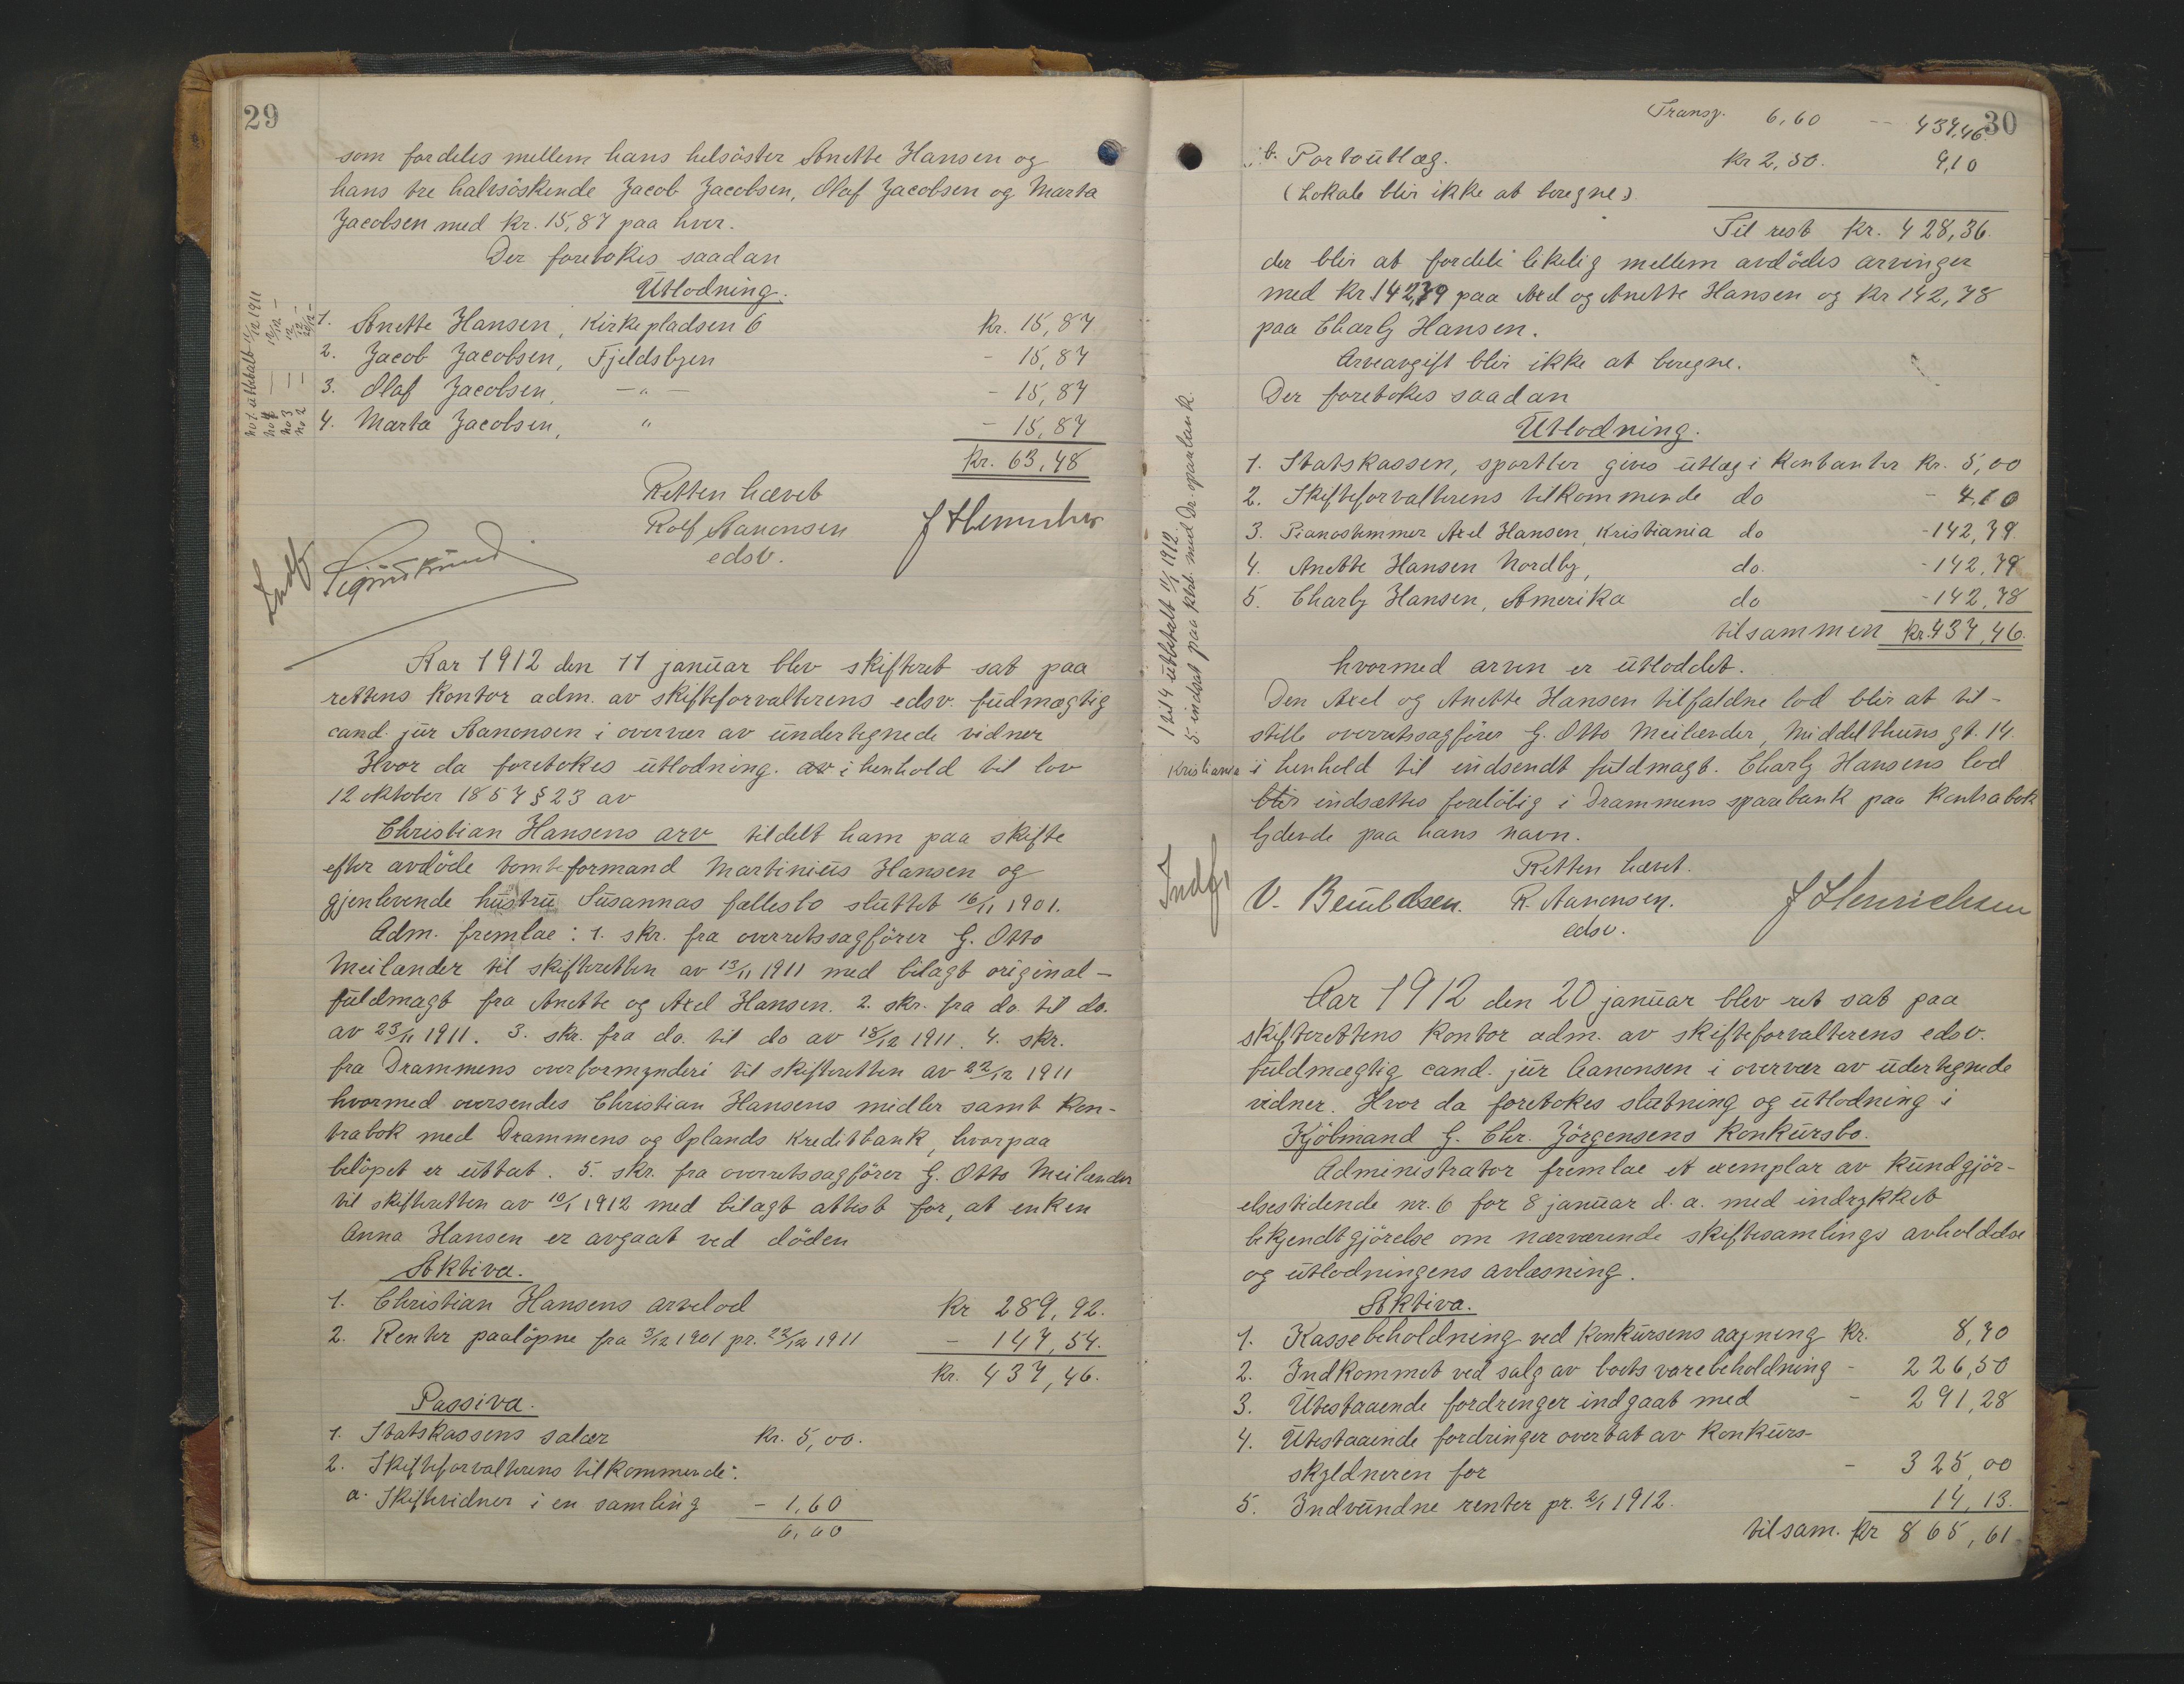 29
som fordeles mellem hans helsöster Anette Hansen og
hans tre halvsöskende Jacob Jacobsen, Olaf Jacobsen og Marta
Jacobsen med kr. 15,87 paa hver.
Der foretokes saadan
Utlodning.
1. Anette Hansen, Kirkepladsen 6 Kr. 15,87
2. Jacob Jacobsen, Fjeldsbyen - 15,87
3. Olaf Jacobsen, -"- - 15,87
4. Marta Jacobsen, " - 15,87
Kr. 63,48
no 1. utbetalt 11/12 1911
no 4 — 12/12 -
no 3 — 12/12 -
no 2 —
Retten hævet
Rolf Aanonsen J Henrichsen
edsv.
Indf.
Aar 1912 den 11 januar blev skifteret sat paa
rettens kontor adm. av skifteforvalterens edsv. fudmægtig
cand. jur Aanonsen i overvær av undertegnede vidner
Hvor da foretokes utlodning. av i henhold til lov
12 oktober 1857 § 23 av
Christian Hansens arv tildelt ham paa skifte
efter avdöde tomteformand Martinius Hansen og
gjenlevende hustru Susannas fællesbo sluttet 16/11 1901.
Adm. fremlae: 1. skr. fra overretssagförer G. Otto
Meilænder til skifteretten av 13/11 1911 med bilagt original-
fuldmagt fra Anette og Axel Hansen. 2. skr. fra do. til do.
av 23/11 1911. 3. skr. fra do. til do av 18/12 1911. 4. skr.
fra Drammens overformynderi til skifteretten av 22/12 1911
hvormed oversendes Christian Hansens midler samt kon-
trabok med Drammens og Oplands Kreditbank, hvorpaa
belöpet er uttat. 5. skr. fra overretssagförer G. Otto Meilænder
til skifteretten av 10/1 1912 med bilagt attest for, at enken
Anna Hansen er avgaat ved döden
Aktiva.
1. Christian Hansens arvelod Kr 289,92.
2. Renter paalöpne fra 3/12 1901 pr. 22/12 1911 - 147,54.
Kr. 437,46.
Passiva.
1. Statskassens salær Kr. 5,00.
2. Skifteforvalterens tilkommende:
a. Skiftevidner i en samling - 1,60
6,60
30
Transp. 6,60 -- 437,46
b. Portoutlæg. Kr 2,50. 9,10
(Lokale blir ikke at beregne)
Til rest Kr. 428,36.
der blir at fordele likelig mellem avdödes arvinger
med Kr 142,79 paa Axel og Anette Hansen og Kr 142,78
paa Charly Hansen.
Arveavgift blir ikke at beregne.
Der foretokes saadan
Utlodning.
1. Statskassen, sportler gives utlæg i Kontanter Kr. 5,00
2. Skifteforvalterens tilkommende do - 4,10
3. Pianostemmer Axel Hansen, Kristiania do - 142,79.
4. Anette Hansen Nordby, do. - 142,79
5. Charly Hansen, Amerika do - 142,78
tilsammen Kr. 437,46.
hvormed arven er utloddet.
Den Axel og Anette Hansen tilfaldne lod blir at til-
stille overretssagförer G. Otto Meilænder, Middelthuns gt. 14.
Kristiania i henhold til indsendt fuldmagt. Charly Hansens lod
blir indsættes forelöbig i Drammens sparebank paa Kontrabok
lydende paa hans navn.
1 til 4 utbetalt 11/1 1912
5. indsat paa ktrb. med Dr. sparebank.
Retten hævet.
Indf.
R. Aanonsen. J Henrichsen
edsv.
Aar 1912 den 20 januar blev ret sat paa
skifterettens kontor adm. av skifteforvalterens edsv.
fuldmægtig cand. jur Aanonsen i overvær av udertegnede
vidner. Hvor da foretokes slutning og utlodning i
Kjöbmand G. Chr. Jörgensens Konkursbo.
Administrator fremlae et exemplar av Kundgjör-
elsestidende nr. 6 for 8 januar d. a. med indrykket
bekjendtgjörelse om nærværende skiftesamlings avholdelse
og utlodningens avlæsning.
Aktiva.
1. Kassebeholdning ved Konkursens aapning Kr. 8,70
2. Indkommet ved salg av boets varebeholdning - 226,50
3. Utestaaende fordringer indgaat med - 291,28
4. Utestaaende fordringer overtat av Konkurs-
skyldneren for - 325,00
5. Indvundne renter pr. 2/1 1912. 14,13.
tilsam. Kr 865,61